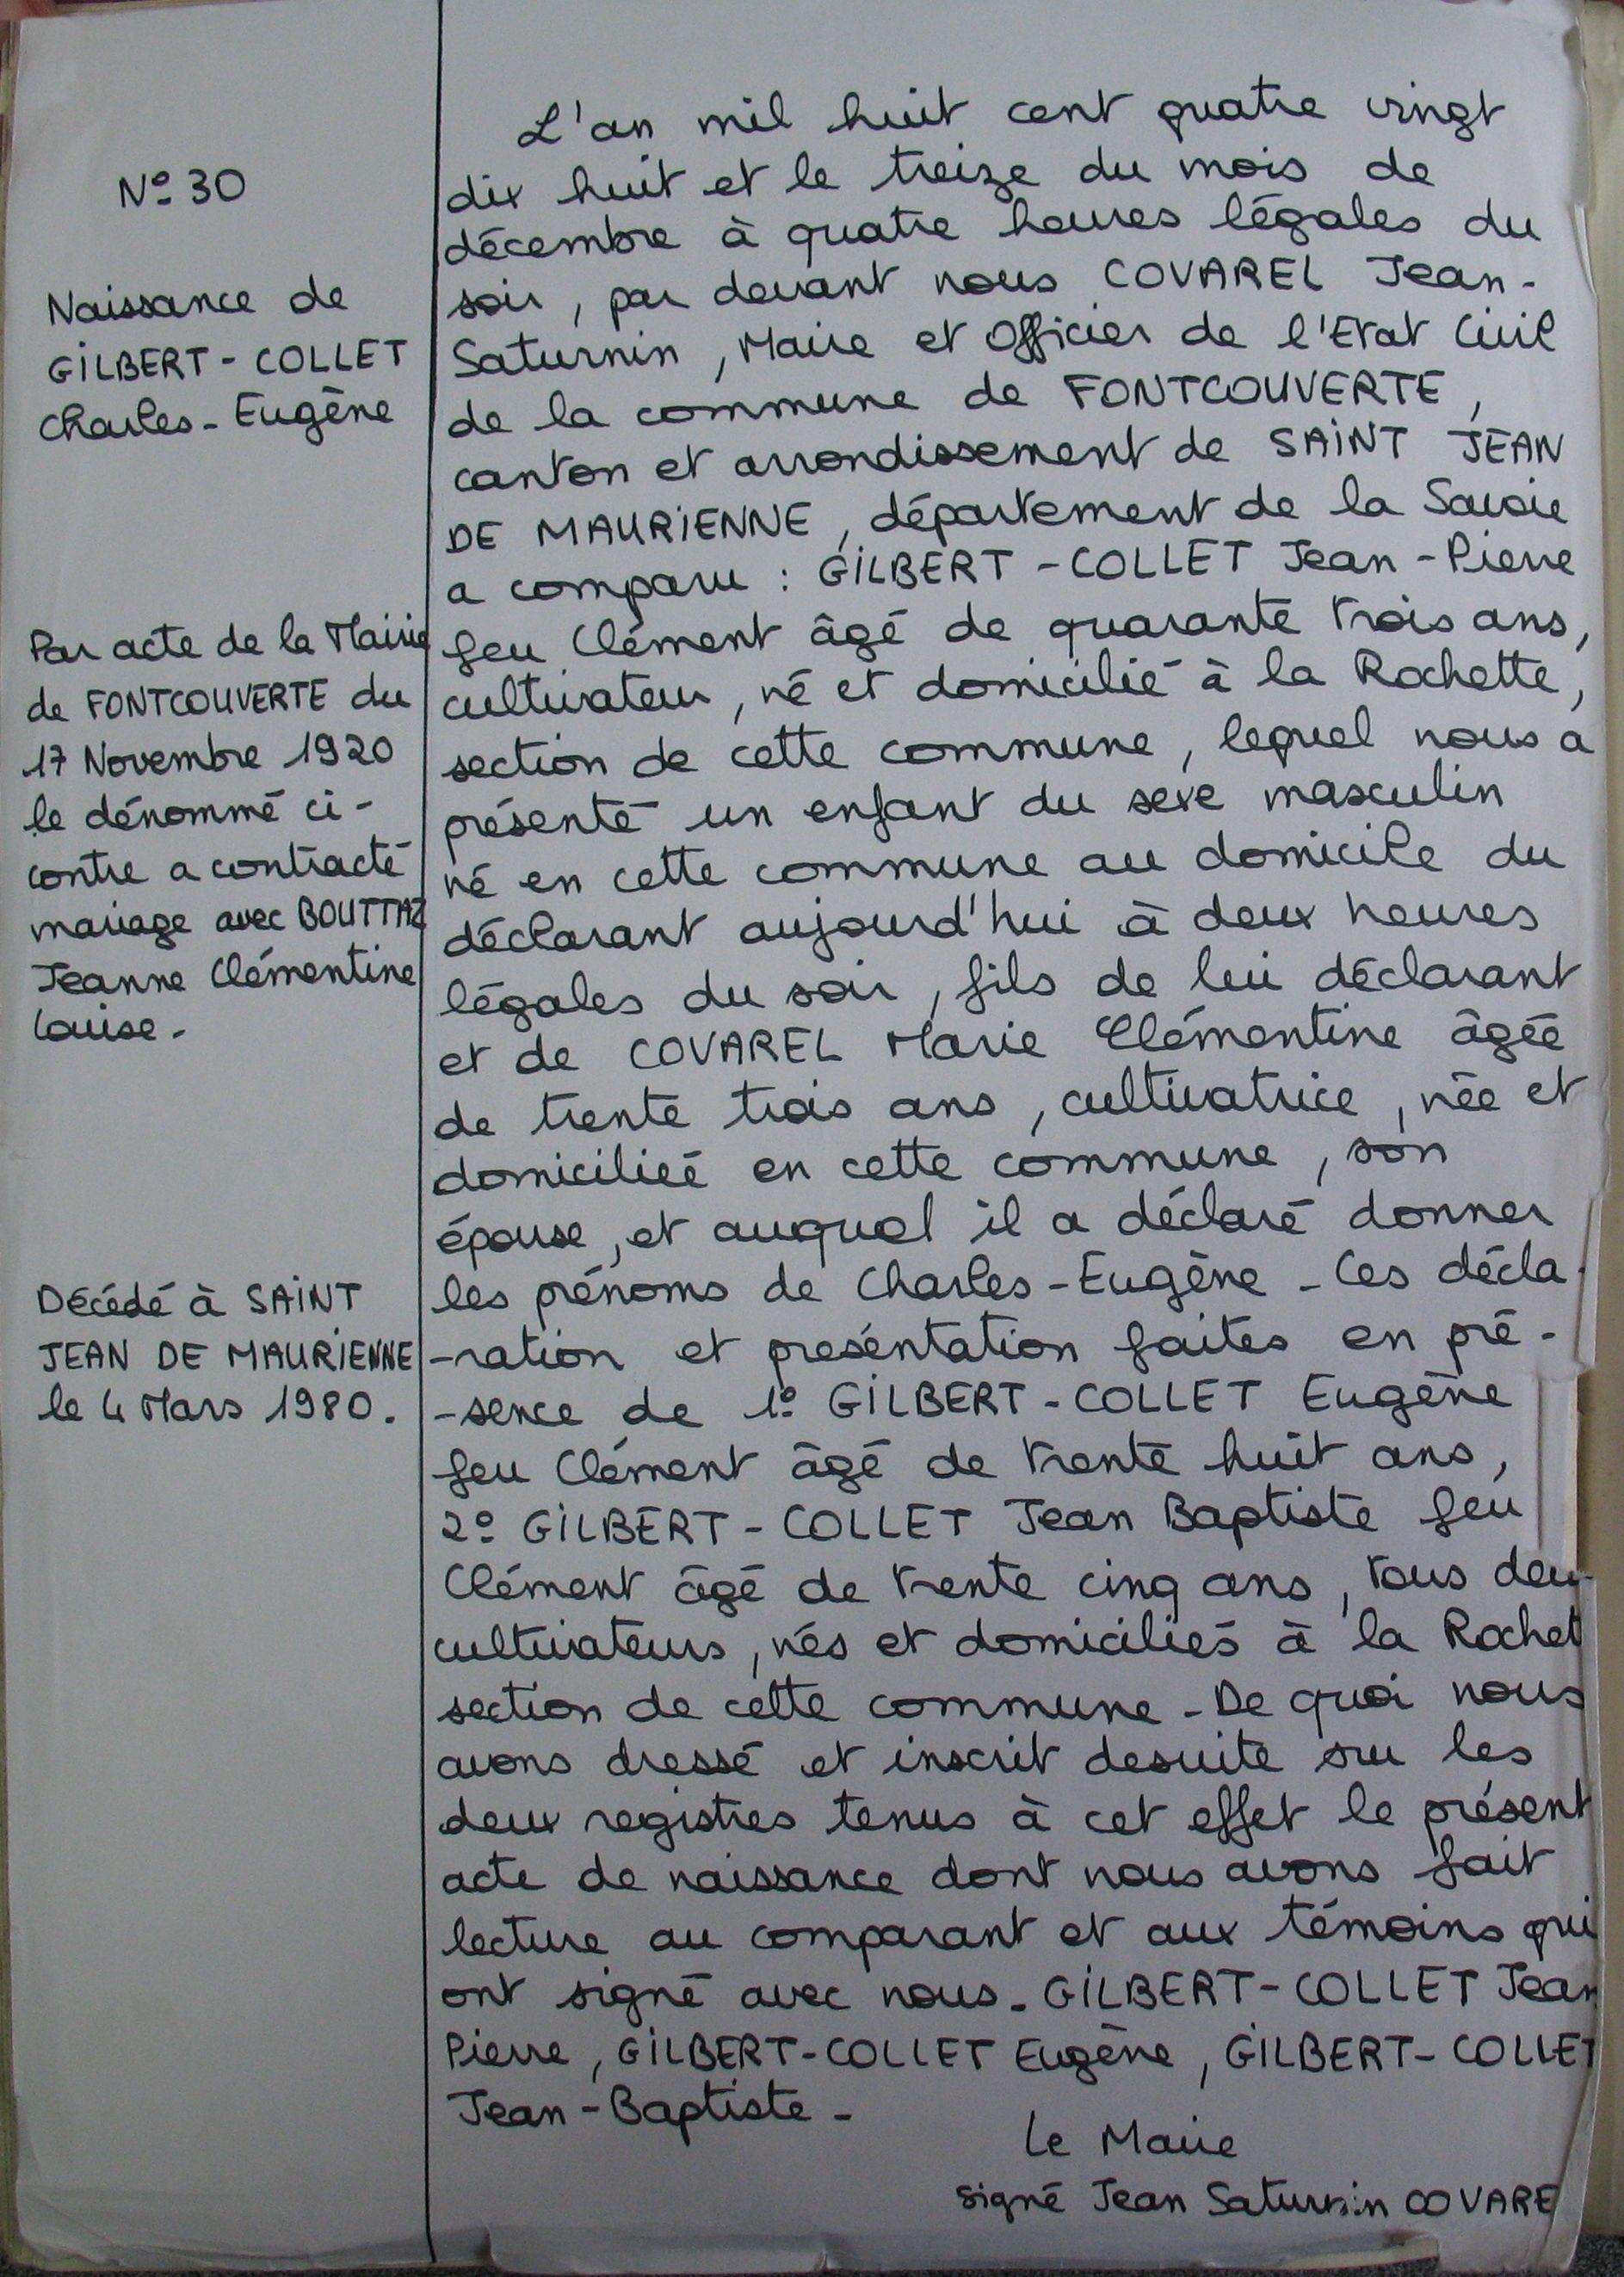 N° 30
Naissance de
GILBERT - COLLET
Charles - Eugène
Par acte de la Mairie
de FONTCOUVERTE du
17 Novembre 1920
le dénommé ci-
contre a contracté
mariage avec BOUTTAZ
Jeanne Clémentine
Louise.
Décédé à SAINT
JEAN DE MAURIENNE
le 4 Mars 1980.
L'an mil huit cent quatre vingt
dix huit et le treize du mois de
décembre à quatre heures légales du
soir, par devant nous COVAREL Jean-
Saturnin, Maire et Officier de l'Etat Civil
de la commune de FONTCOUVERTE,
canton et arrondissement de SAINT JEAN
DE MAURIENNE, département de la Savoie
a comparu : GILBERT - COLLET Jean - Pierre
feu Clément âgé de quarante trois ans,
cultivateur, né et domicilié à la Rochette,
section de cette commune, lequel nous a
présenté un enfant du sexe masculin
né en cette commune au domicile du
déclarant aujourd'hui à deux heures
légales du soir, fils de lui déclarant
et de COVAREL Marie Clémentine âgée
de trente trois ans, cultivatrice, née et
domiciliée en cette commune, son
épouse, et auquel il a déclaré donner
les prénoms de Charles - Eugène - Ces décla-
-ration et présentation faites en pré-
-sence de 1° GILBERT - COLLET Eugène
feu Clément âgé de trente huit ans,
2° GILBERT - COLLET Jean Baptiste feu
Clément âgé de trente cinq ans, tous deu
cultivateurs, nés et domiciliés à la Rochet
section de cette commune - De quoi nous
avons dressé et inscrit desuite sur les
deux registres tenus à cet effet le présent
acte de naissance dont nous avons fait
lecture au comparant et aux témoins qui
ont signé avec nous. GILBERT - COLLET Jean
Pierre, GILBERT - COLLET Eugène, GILBERT - COLLET
Jean - Baptiste -
Le Maire
signé Jean Saturnin COVARE